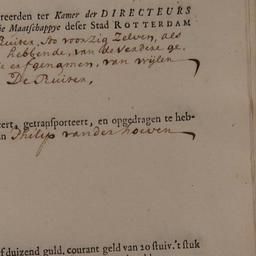 reerden ter Kamer der DIRECTEURS
ie Maatschappye deser Stad ROTTERDAM
Ruiter, so voor zig Zelven, als
hebbende, van de verdere ge
e erfgenamen, van wijlen
De Ruiter,
eert, getransporteert, en opgedragen te heb-
an Philip vander hoeven
f duizend guld. courant geld van 20 stuiv. 't stuk